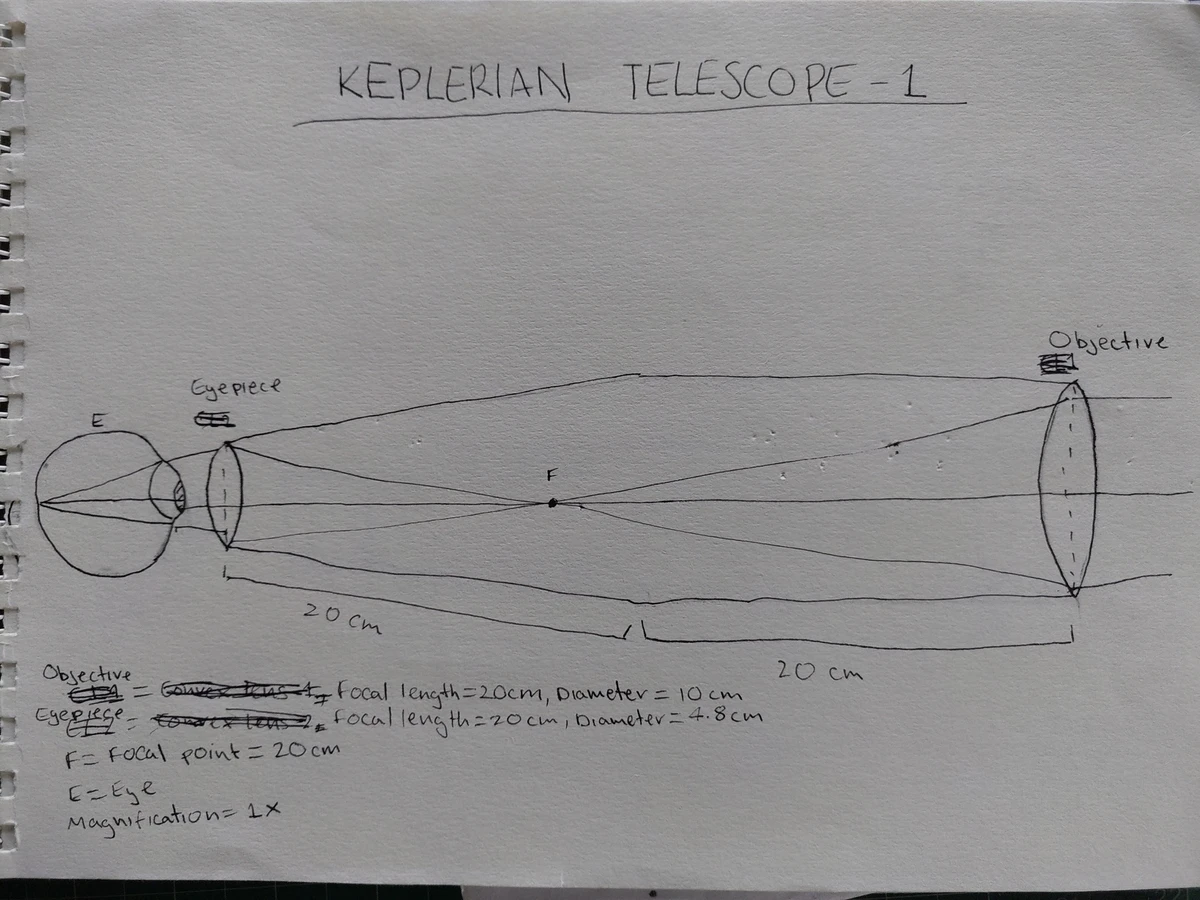 KEPLERIAN TELESCOPE - 1
Objective
Eyepiece
E
F
20 cm
20 cm
Objective
= Focal length = 20cm, Diameter = 10 cm
Eyepiece
= Focal length = 20 cm, Diameter = 4.8 cm
F = Focal point = 20 cm
E = Eye
Magnification = 1x